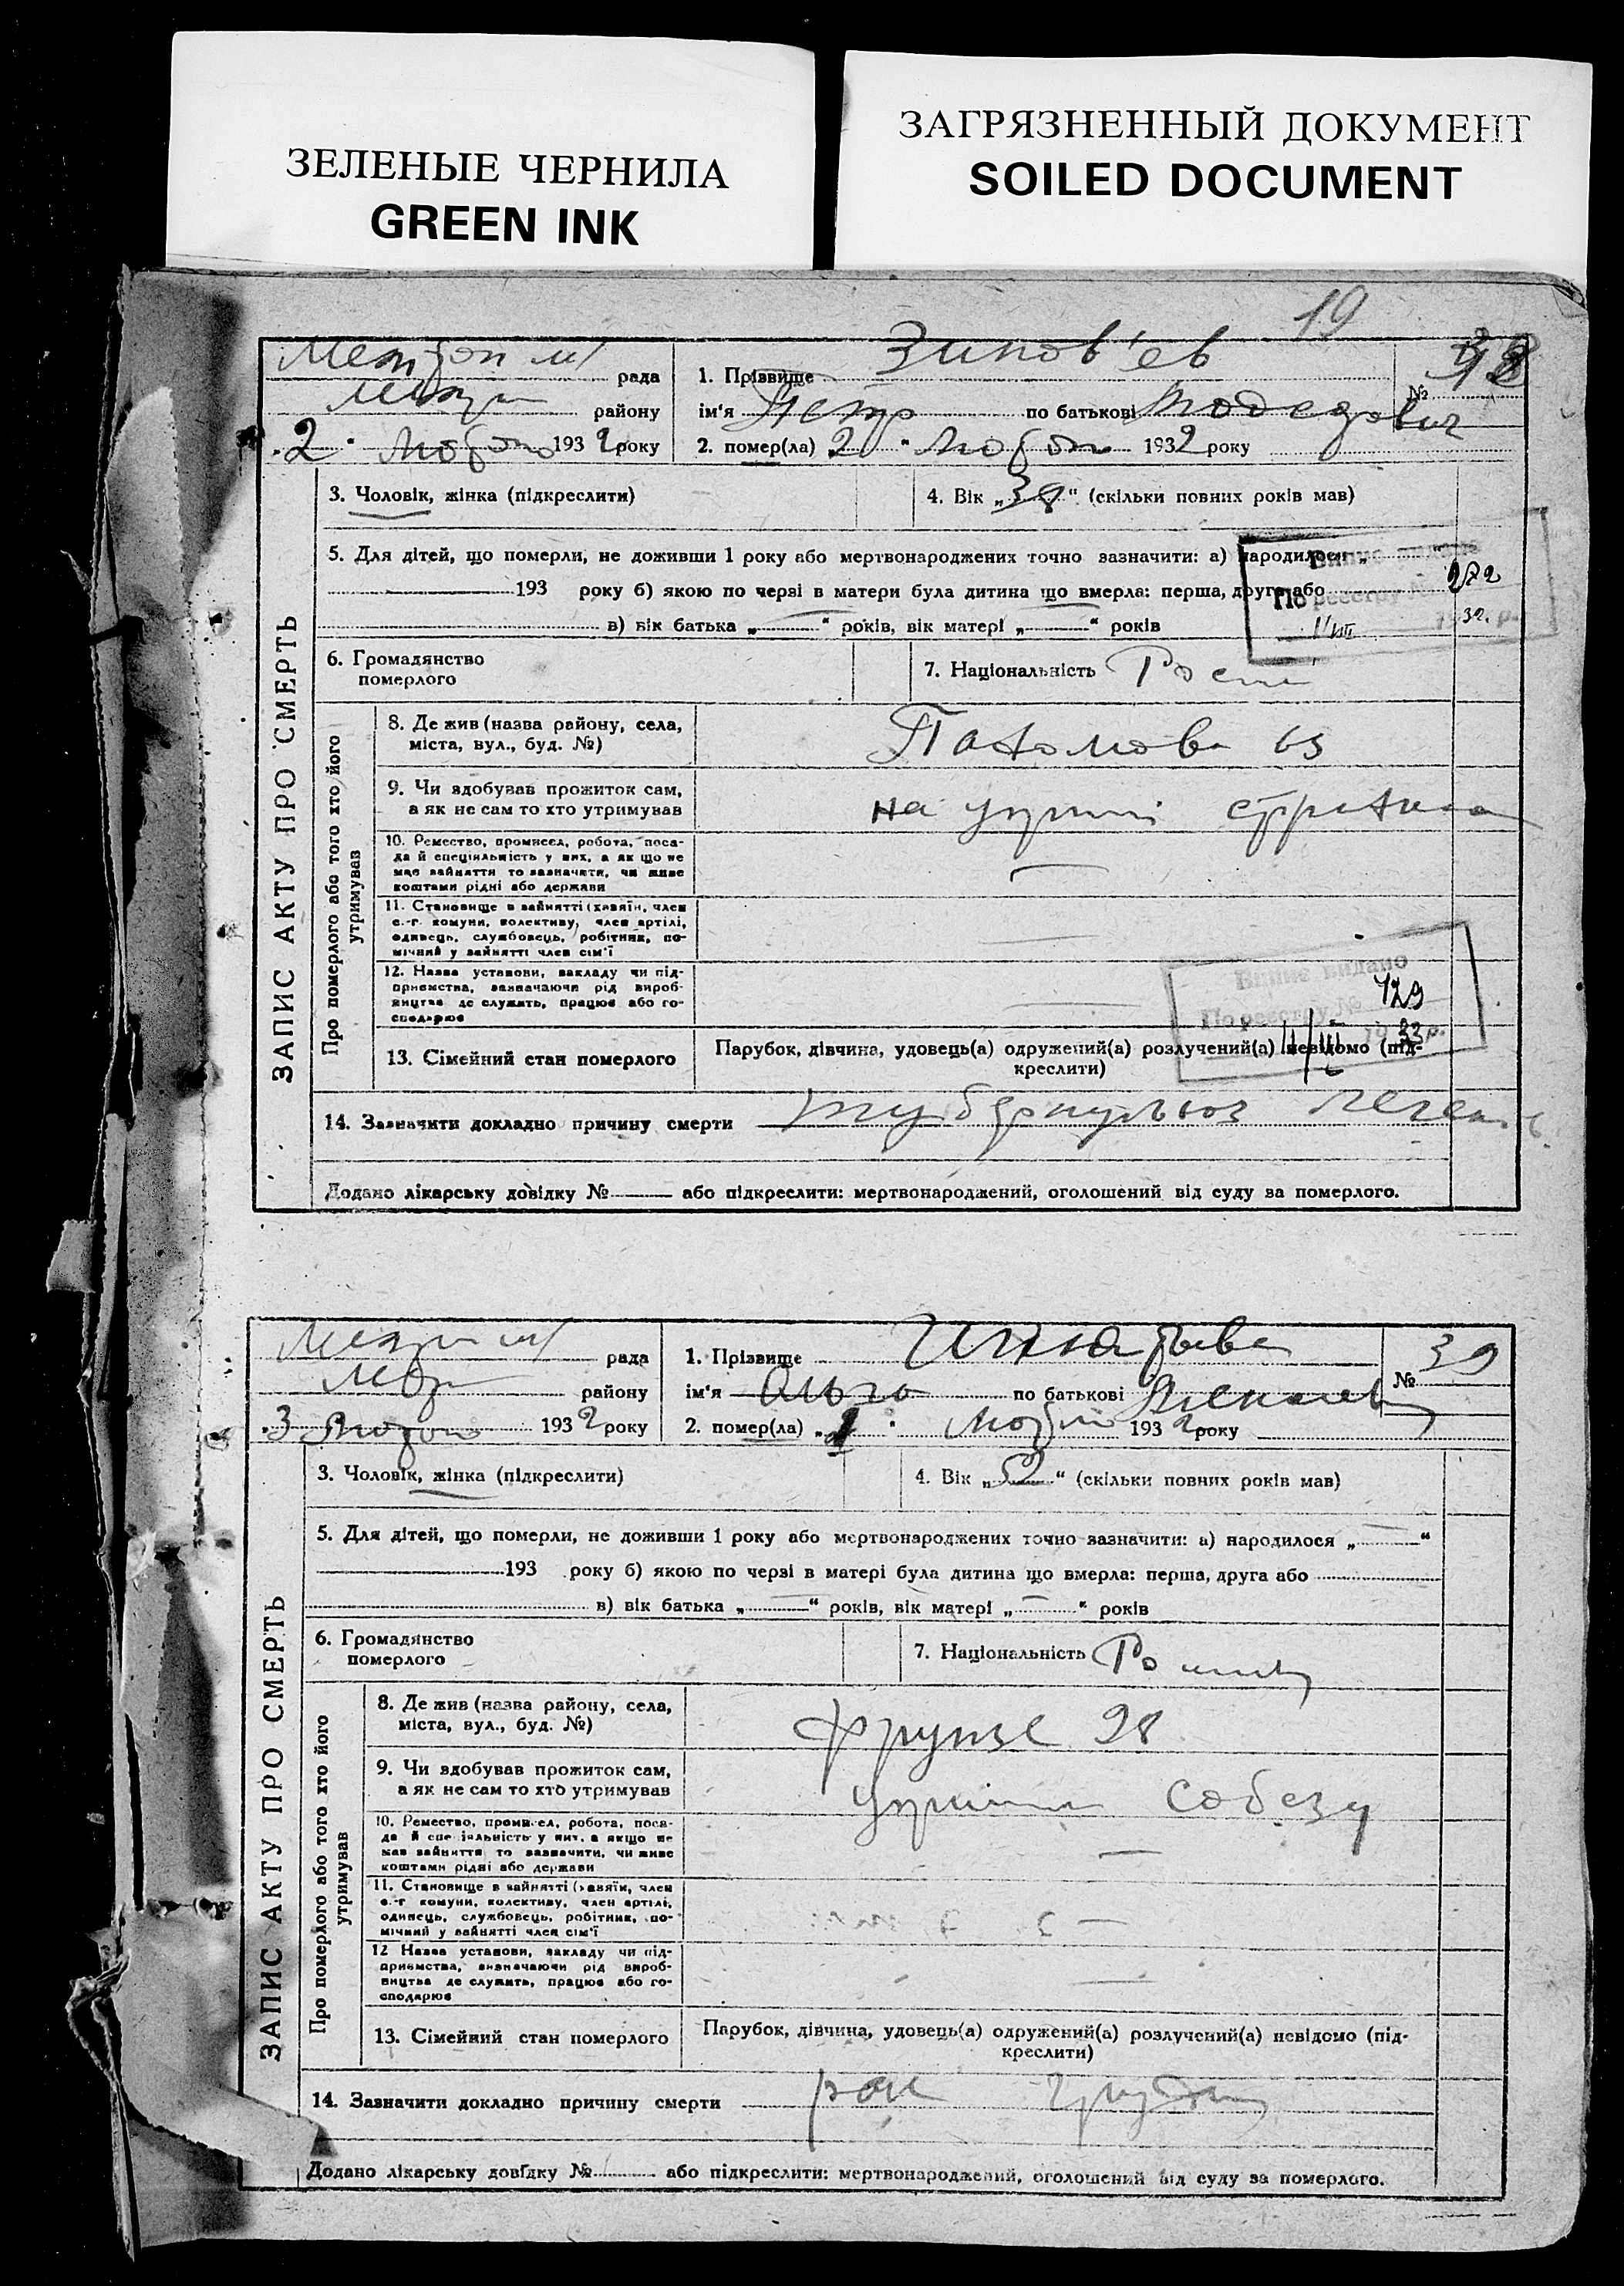 ЗЕЛЕНЫЕ ЧЕРНИЛА
GREEN INK
ЗАГРЯЗНЕННЫЙ ДОКУМЕНТ
SOILED DOCUMENT
19
ЗАПИС АКТУ ПРО СМЕРТЬ
рада
району
2 " 1932 року
1. Прізвище Зинов'ев
№
ім'я Петр по батькові
2. помер(ла) 2 " 1932 року
3. Чоловік, жінка (підкреслити)
4. Вік „38“ (скільки повних років мав)
5. Для дітей, що померли, не доживши 1 року або мертвонароджених точно зазначити: а) народилося „
193 року б) якою по черзі в матери була дитина що вмерла: перша, друга або
в) вік батька „ “ років, вік матері „ “ років
По реєстру № 272
32.
6. Громадянство
померлого
7. Національність
Про померлого або того хто його
утримував
8. Де жив (назва району, села,
міста, вул., буд. №)
9. Чи здобував прожиток сам,
а як не сам то хто утримував
на
10. Ремество, промисел, робота, поса-
да й спеціяльність у них, а як що не
мав зайняття то зазначити, чи живе
коштами рідні або держави
11. Становище в зайнятті (хазяїн, член
с.-г. комуни, колективу, член артілі,
одинець, службовець, робітник, по-
мічний у зайнятті член сім'ї
12. Назва установи, закладу чи під-
приємства, зазначаючи рід вироб-
ництва де служить, працює або го-
сподарює
Випис видано
По реєстру № 729
1933 р.
13. Сімейний стан померлого
Парубок, дівчина, удовець(а) одружений(а) розлучений(а) невідомо (під-
креслити)
14. Зазначити докладно причину смерти туберкульоз легень
Додано лікарську довідку № або підкреслити: мертвонароджений, оголошений від суду за померлого.
ЗАПИС АКТУ ПРО СМЕРТЬ
рада
району
3 1932 року
1. Прізвище
№ 39
ім'я Ольга по батькові
2. помер(ла) „ " 1932 року
3. Чоловік, жінка (підкреслити)
4. Вік „52“ (скільки повних років мав)
5. Для дітей, що померли, не доживши 1 року або мертвонароджених точно зазначити: а) народилося „ “
193 року б) якою по черзі в матері була дитина що вмерла: перша, друга або
в) вік батька „ “ років, вік матері „ “ років
6. Громадянство
померлого
7. Національність
Про померлого або того хто його
утримував
8. Де жив (назва району, села,
міста, вул., буд. №)
Фрунзе 28
9. Чи здобував прожиток сам,
а як не сам то хто утримував
Собезу
10. Ремество, промисел, робота, поса-
да й спеціяльність у них, а якщо не
мав зайняття то зазначити, чи живе
коштами рідні або держави
11. Становище в зайнятті (хазяїн, член
с.-г. комуни, колективу, член артілі,
одинець, службовець, робітник, по-
мічний у зайнятті член сім'ї
12 Назва установи, закладу чи під-
приємства, зазначаючи рід вироб-
ництва де служить, працює або го-
сподарює
13. Сімейний стан померлого
Парубок, дівчина, удовець(а) одружений(а) розлучений(а) невідомо (під-
креслити)
14. Зазначити докладно причину смерти рак
Додано лікарську довідку № або підкреслити: мертвонароджений, оголошений від суду за померлого.